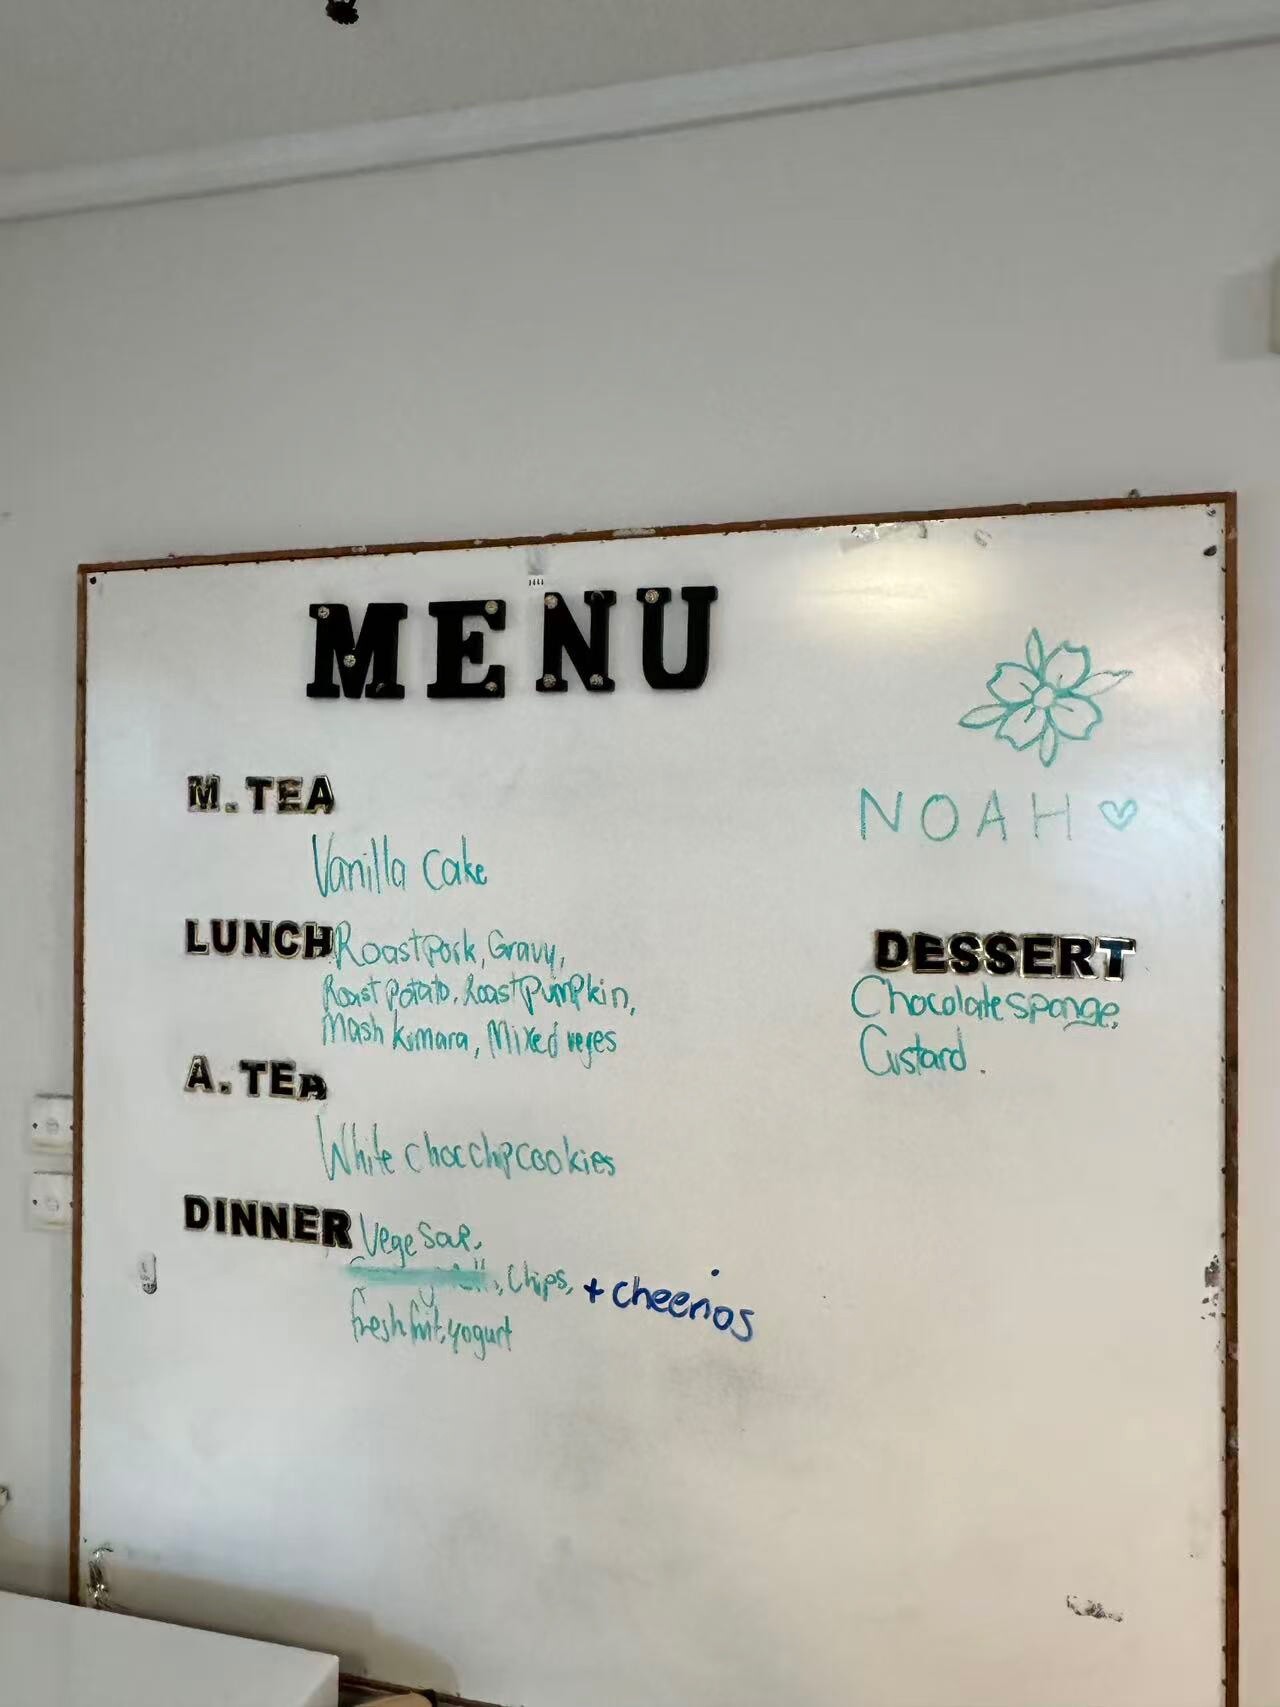 MENU
M. TEA
Vanilla Cake
LUNCH Roast Pork, Gravy,
Roast Potato, Roast Pumpkin,
Mash kumara, Mixed veges
A. TEA
White choc chip cookies
DINNER Vege
, Chips, + cheerios
fresh fruit, yogurt
NOAH
DESSERT
Chocolate sponge,
Custard.